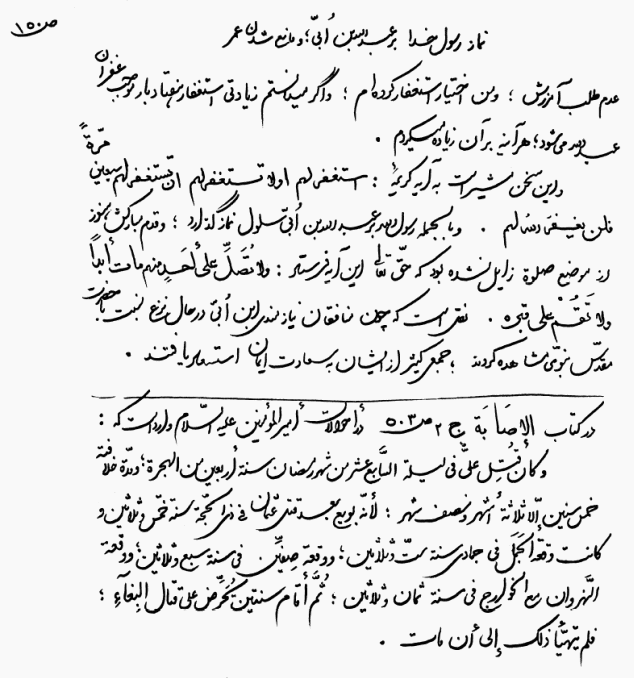 ص ١٥٠
نماز رسول خدا بر عبدالله بن اُبیّ؛ و مانع شدن عمر
عدم طلب آمرزش؛ و من اختیار استغفار کرده‌ام؛ و اگر میدانستم زیادتی استغفار بر هفتاد بار موجب غفران
عبدالله می‌شود؛ هر آینه بر آن زیاده میکردم.
و این سخن مشیر است به آیهٔ کریمهٔ: استغفر لهم او لا تستغفر لهم ان تستغفر لهم سبعین مرّةً
فلن یغفر الله لهم. و بالجمله رسول الله بر عبدالله بن اُبیّ سلول نماز گذارد؛ و قدم مبارکش هنوز
از موضع صلوة زایل نشده بود که حقّ تعالی این آیه فرستاد: ولا تُصَلِّ علی أحَدٍ منهم مات أبداً
ولا تَقُمْ علی قبره. نقل است که چون منافقان نیازمندی ابن اُبیّ در حال نزع نسبت با حضرت
مقدّس نبوّی مشاهده کردند؛ جمعی کثیر از ایشان به سعادت ایمان استسعاد یافتند.
در کتاب الاِصَابَة ج ٢ ص ٥٠٣ در أحوالات أمیرالمؤمنین علیه السّلام وارد است که:
و کان قُتِلَ علیٌّ فی لیلة السَّابع عشر من شهر رمضان سنة أربعین من الهجرة؛ و مدّة خلافته
خمس سنین إلّا ثلاثة أشهر و نصف شهر؛ لأنّه بویع بعد قتل عثمان فی ذی الحجّة سنة خمس و ثلاثین و
کانت وقعة الجَمَل فی جمادی سنة ستّ و ثلاثین؛ و وقعة صِفّین فی سنة سبع و ثلاثین؛ و وقعة
النّهروان مع الخوارج فی سنة ثمان و ثلاثین؛ ثُمَّ أقام سنتین یُحَرِّض علی قتال البُغاءِ؛
فلم یتهیّأ ذلک إلی أن مات.